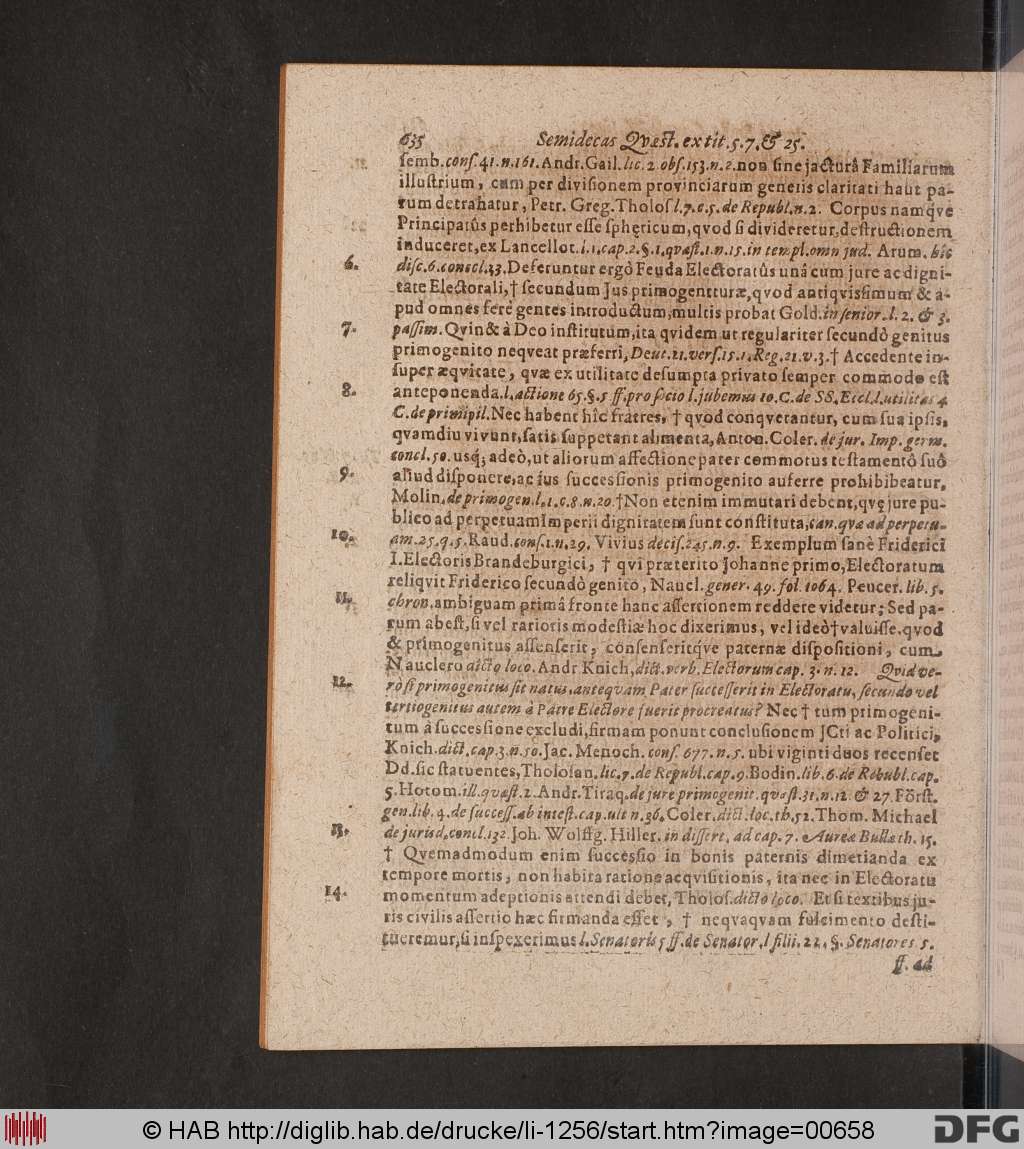 635 Semidecas Qvæst. ex tit. 5. 7. & 25.
semb. cons. 41. n. 161. Andr. Gail. lic. 2. obs. 153. n. 2. non sine jacturâ Familiarum
illustrium, cum per divisionem provinciarum generis claritati haut pa-
rum detrahatur, Petr. Greg. Tholos l. 7. c. 5. de Republ. n. 2. Corpus namqve
Principatûs perhibetur esse sphęricum, qvod si divideretur, destructionem
induceret, ex Lancellot. l. 1. cap. 2. §. 1. qvæst. 1. n. 15. in templ. omn jud. Arum. hîc
6. disc. 6. conccl. 33. Deferuntur ergò Feuda Electoratûs unâ cum jure ac digni-
tate Electorali, † secundum Jus primogentturæ, qvod antiqvissimum & a-
pud omnes ferè gentes introductum, multis probat Gold. in senior. l. 2. & 3.
7. passim. Qvin & à Deo institutum, ita qvidem ut regulariter secundò genitus
primogenito neqveat præferri, Deut. 21. vers. 15. 1. Reg. 21. v. 3. † Accedente in-
super æqvitate, qvæ ex utilitate desumpta privato semper commodo est
8. anteponenda. l. actione 65. §. 5 ff. pro socio l. jubemus 10. C. de SS. Eccl. l. utilitas 4
C. de primipil. Nec habent hîc fratres, † qvod conqverantur, cum sua ipsis,
qvamdiu vivunt, satis suppetant alimenta, Anton. Coler. de jur. Imp. germ.
concl. 50. usq; adeò, ut aliorum affectione pater commotus testamentô suô
9. aliud disponere, ac jus successionis primogenito auferre prohibibeatur,
Molin. de primogen. l. 1. c. 8. n. 20. † Non etenim immutari debent, qvę jure pu-
blico ad perpetuam Imperii dignitatem sunt constituta, can. qvæ ad perpetu-
10. am. 25. q. 5. Raud. cons. 1. n. 29. Vivius decis. 245. n. 9. Exemplum sanè Friderici
I. Electoris Brandeburgici, † qvi præterito Johanne primo, Electoratum
reliqvit Friderico secundò genito, Naucl. gener. 49. fol. 1064. Peucer. lib. 5.
11. chron. ambiguam primâ fronte hanc assertionem reddere videtur; Sed pa-
rum abest, si vel rarioris modestiæ hoc dixerimus, vel ideò † valuisse. qvod
& primogenitus assenserit, consenseritqve paternæ dispositioni, cum
Nauclero dicto loco. Andr Knich, dict. verb. Electorum cap. 3. n. 12. Qvid ve-
12. rò si primogenitus sit natus, anteqvam Pater successerit in Electoratu, secundo vel
tertiogenitus autem à Patre Electore fuerit procreatus? Nec † tum primogeni-
tum à successione excludi, firmam ponunt conclusionem JCti ac Politici,
Knich. dict. cap. 3. n. 50. Jac. Menoch. cons. 677. n. 5. ubi viginti duos recenset
Dd. sic statuentes, Tholosan. lic. 7. de Republ. cap. 9. Bodin. lib. 6. de Rebubl. cap.
5. Hotom. ill. qvæst. 2. Andr. Tiraq. de jure primogenit. qvæst. 31. n. 12. & 27. Förſt.
gen. lib. 4. de success. ab intest. cap. ult n. 36. Coler. dict. loc. th. 52. Thom. Michael
13. de jurisd. concl. 132. Joh. Wolffg. Hiller. in dissert. ad cap. 7. Aureæ Bullæ th. 15.
† Qvemadmodum enim successio in bonis paternis dimetianda ex
tempore mortis, non habita ratione acqvisitionis, ita nec in Electoratu
14. momentum adeptionis attendi debet, Tholos. dicto loco. Et si textibus ju-
ris civilis assertio hæc firmanda esset, † neqvaqvam fulcimento desti-
tueremur, si inspexerimus l. Senatoris 5 ff. de Senator. l filii. 22. §. Senatores 5.
ff. ad
© HAB http://diglib.hab.de/drucke/li-1256/start.htm?image=00658
DFG